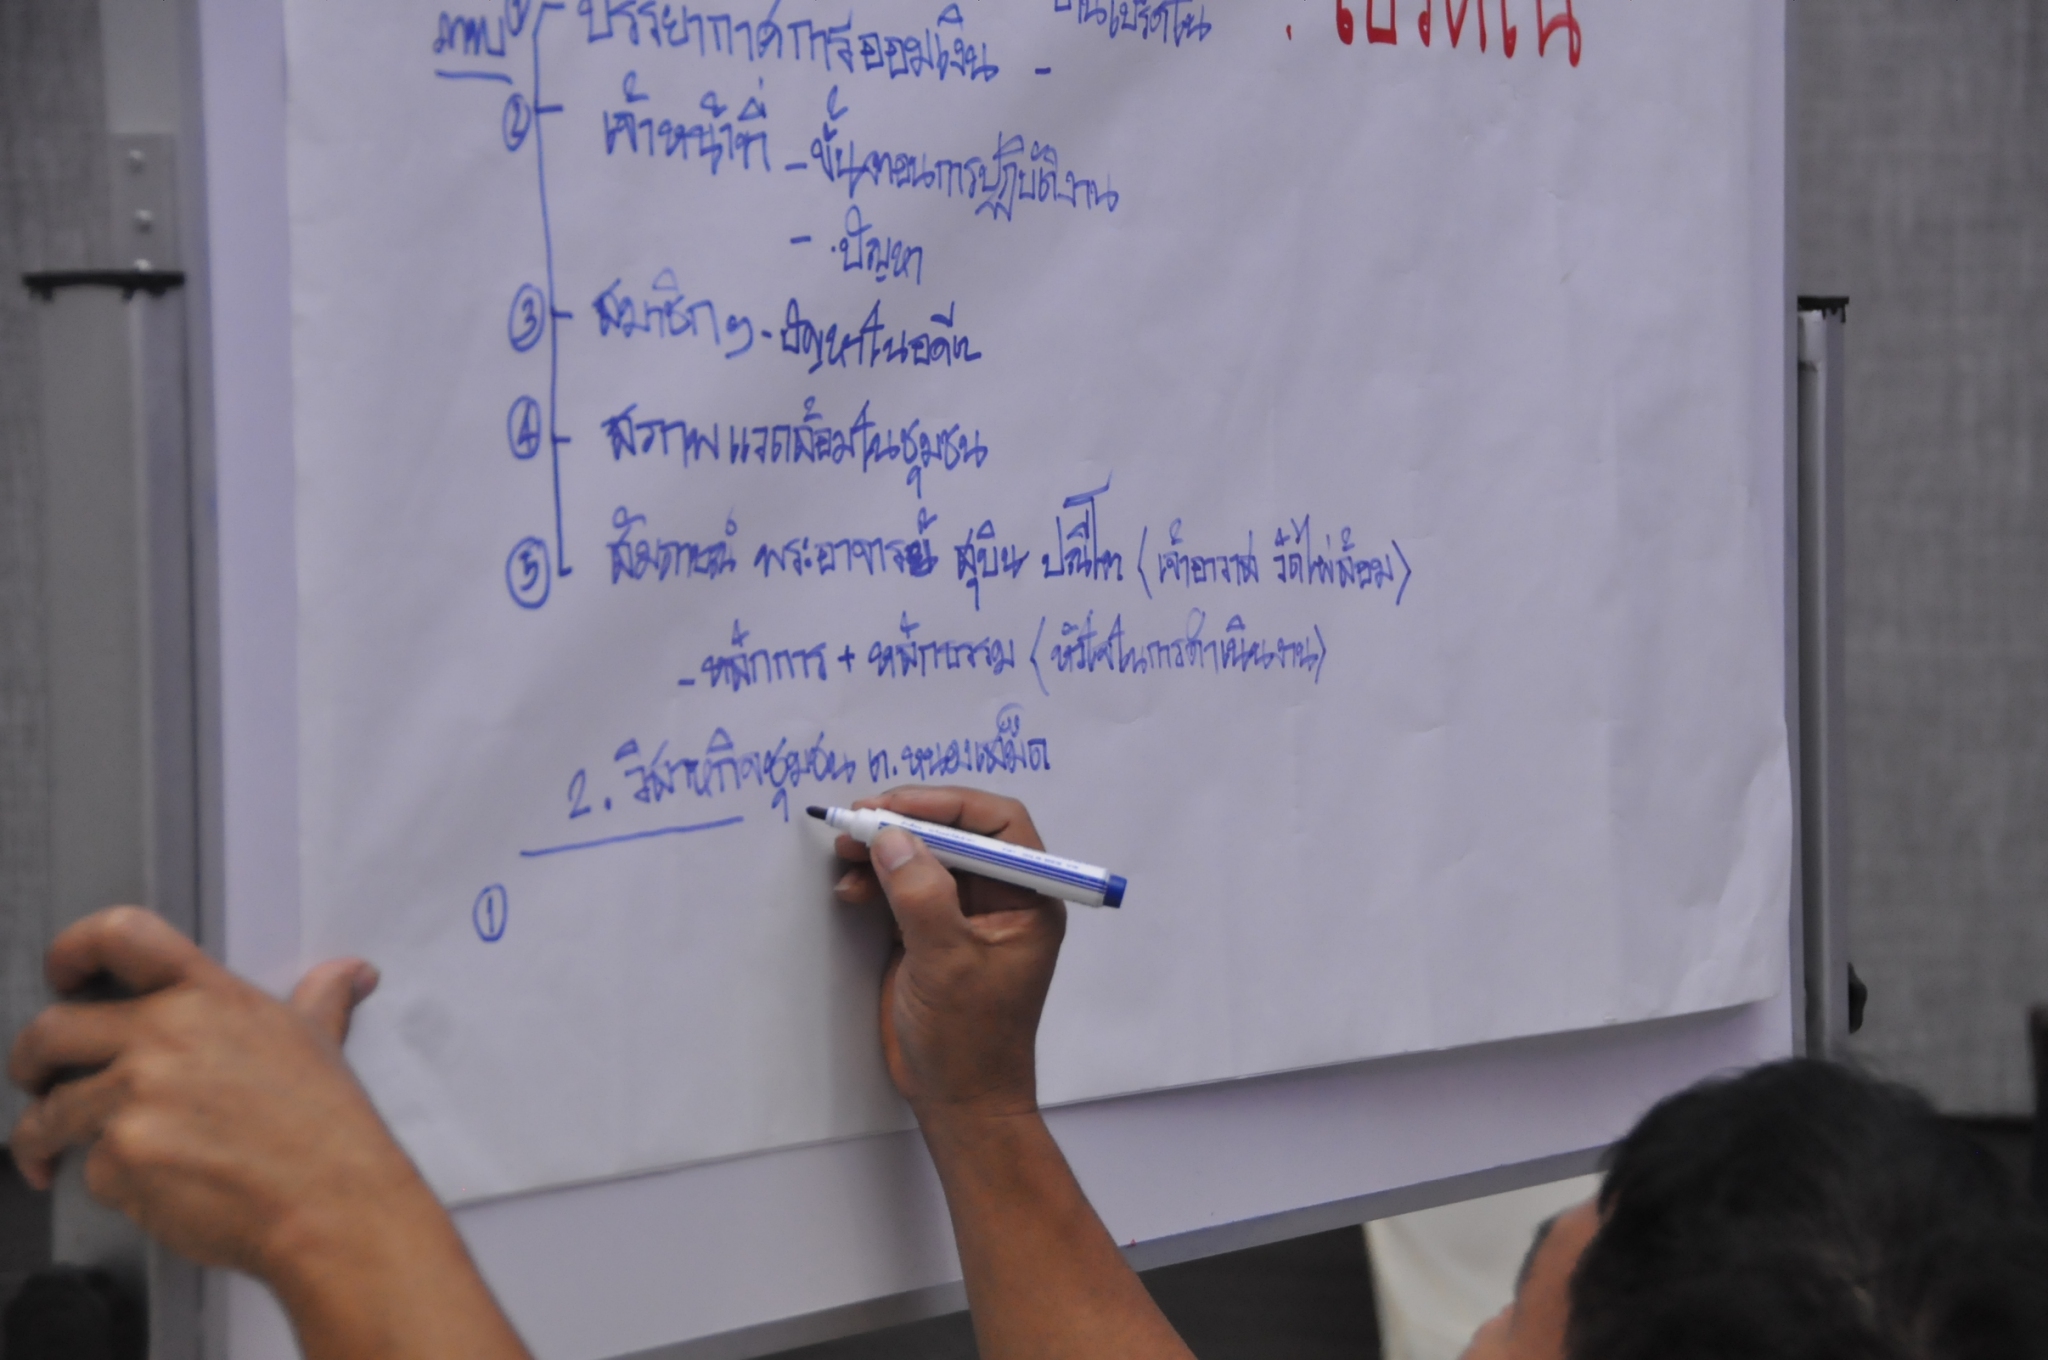 : เปร็ดใน
บ้านเปร็ดใน
ภาพ ① บรรยากาศการออมเงิน -
② เจ้าหน้าที่ - ขั้นตอนการปฏิบัติงาน
- ปัญหา
③ สมาชิกฯ - ปัญหาในอดีต
④ สภาพแวดล้อมในชุมชน
⑤ สัมภาษณ์ พระอาจารย์ สุบิน ปณีโต (เจ้าอาวาส วัดไผ่ล้อม)
- หลักการ + หลักธรรม (หัวใจในการดำเนินงาน)
2. วิสาหกิจชุมชน ต.หนองเสม็ด
①